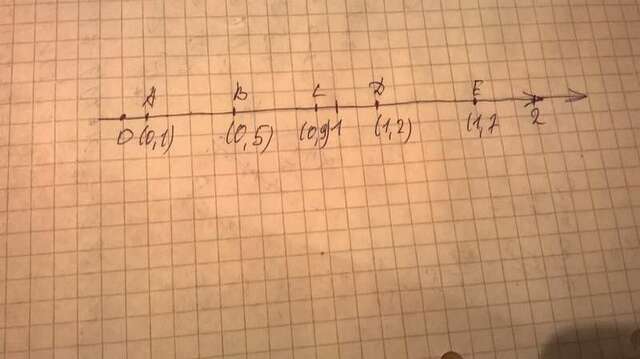 A B C D E
0 (0,1) (0,5) (0,9) 1 (1,2) (1,7 2